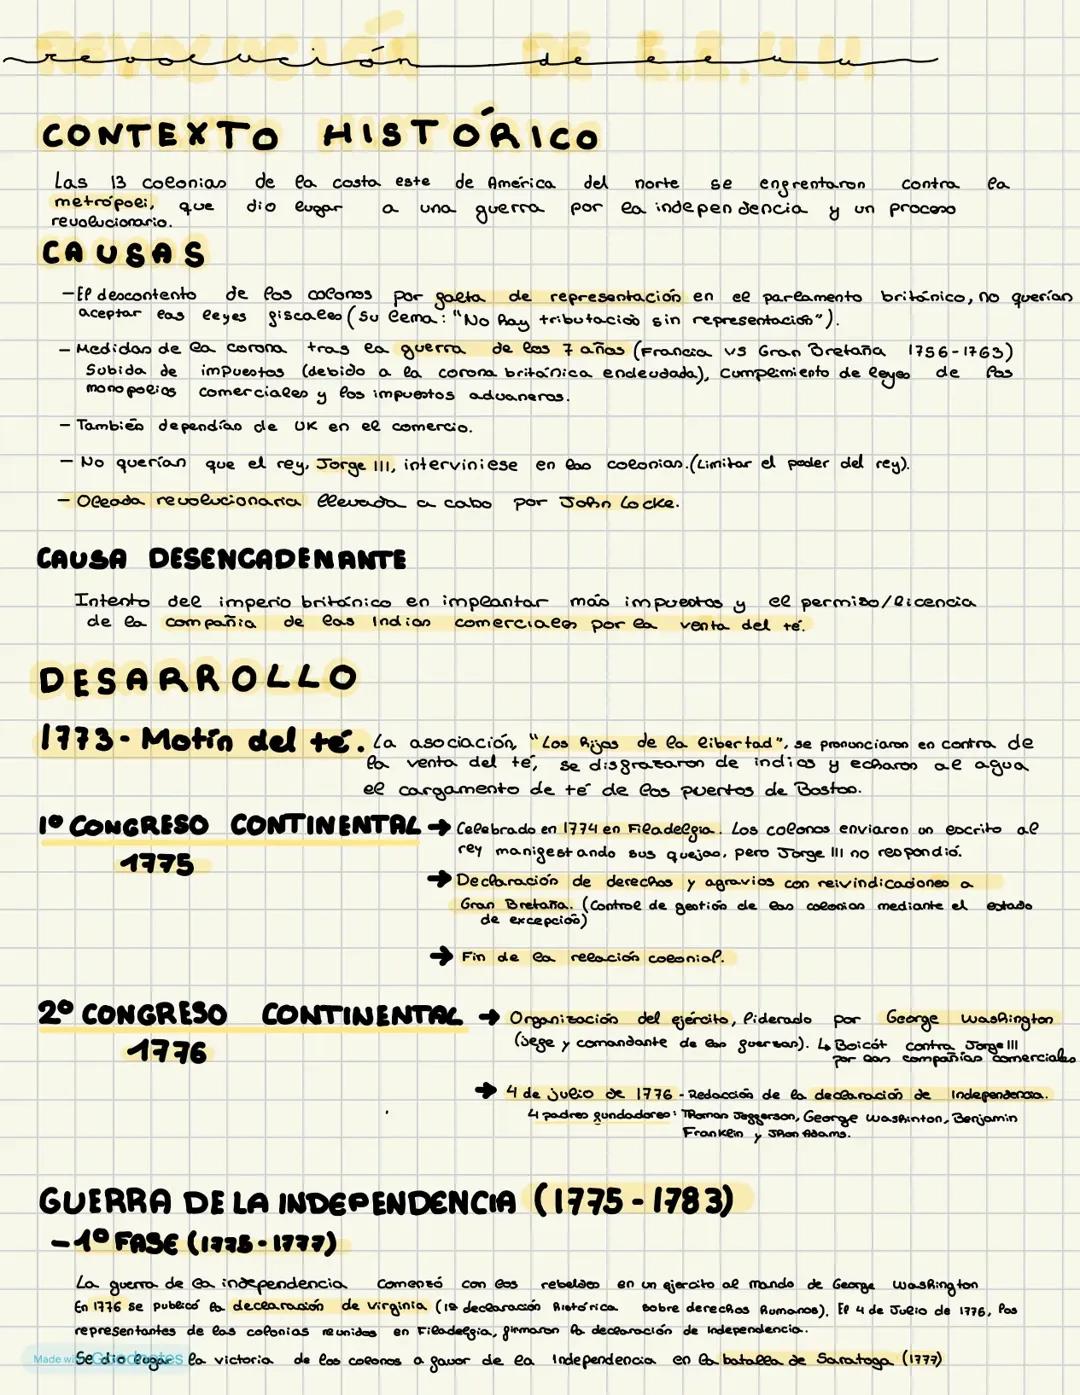 revolución de eeuu
CONTEXTO HISTÓRICO
Las 13 colonias de la costa este de América del norte se enfrentaron contra la
metrópoli, que dio lugar a una guerra por la independencia y un proceso
revolucionario.
CAUSAS
-El descontento de los colonos por falta de representación en el parlamento británico, no querían
aceptar las leyes fiscales (su lema: "No hay tributación sin representación").
- Medidas de la corona tras la guerra de los 7 años (Francia vs Gran Bretaña 1756-1763)
Subida de impuestos (debido a la corona británica endeudada), Cumplimiento de leyes de los
monopolios comerciales y los impuestos aduaneros.
- También dependían de UK en el comercio.
- No querían que el rey, Jorge III, interviniese en las colonias.(Limitar el poder del rey).
- Oleada revolucionaria llevada a cabo por John Locke.
CAUSA DESENCADENANTE
Intento del imperio británico en implantar más impuestos y el permiso/licencia
de la compañia de las Indias comerciales por la venta del té.
DESARROLLO
1773- Motín del té. La asociación, "Los hijos de la libertad", se pronunciaron en contra de
la venta del té, se disfrazaron de indios y echaron al agua
el cargamento de té de los puertos de Boston.
1º CONGRESO CONTINENTAL → Celebrado en 1774 en Filadelfia. Los colonos enviaron un escrito al
1775 rey manifestando sus quejas, pero Jorge III no respondió.
→ Declaración de derechos y agravios con reivindicaciones a
Gran Bretaña. (Control de gestión de las colonias mediante el estado
de excepción)
→ Fin de la relación colonial.
2º CONGRESO CONTINENTAL → Organización del ejército, liderado por George Washington
1776 (jefe y comandante de las fuerzas). ↳ Boicót contra Jorge III
por las compañías comerciales
→ 4 de julio de 1776 - Redacción de la declaración de Independencia.
4 padres fundadores: Thomas Jefferson, George Washinton, Benjamin
Franklin y Jhon Adams.
GUERRA DE LA INDEPENDENCIA (1775-1783)
-1º FASE (1775-1777)
La guerra de la independencia comenzó con los rebeldes en un ejercito al mando de George Washington
En 1776 se publicó la declaración de Virginia (1ª declaración histórica sobre derechos humanos). El 4 de Julio de 1776, los
representantes de las colonias reunidos en Filadelfia, firmaron la declaración de Independencia.
Se dio lugar la victoria de los colonos a favor de la Independencia en la batalla de Saratoga (1777)
Made with Goodnotes